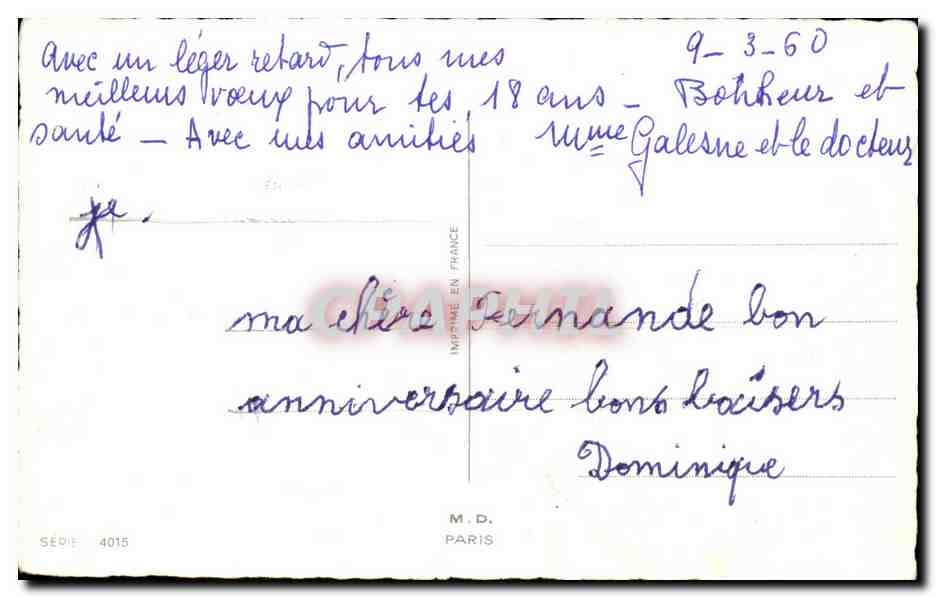 9-3-60
Avec un léger retard, tous mes
meilleurs vœux pour tes 18 ans - Bonheur et
santé - Avec mes amitiés Mme Galesne et le docteur
IMPRIMÉ EN FRANCE
CPAPHIL
ma chère Fernande bon
anniversaire bons baisers
Dominique
M.D.
PARIS
SÉRIE 4015